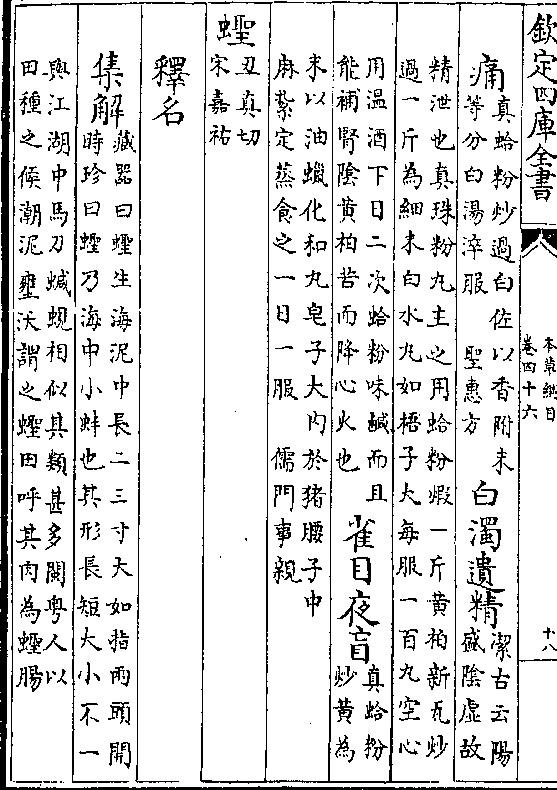 欽定四庫全書
本草綱目
卷四十六
十八
痛真蛤粉炒過白佐以香附末
等分白湯淬服　聖惠方
白濁遺精潔古云陽
盛陰虛故
精泄也真珠粉丸主之用蛤粉煆一斤黃柏新瓦炒
過一斤為細末白水丸如梧子大每服一百九空心
用溫酒下日二次蛤粉味鹹而且
能補腎陰黃柏苦而降心火也
雀目夜盲真蛤粉
炒黃為
末以油蠟化和丸皂子大内於猪腰子中
麻紥定蒸食之一日一服　儒門事親
蟶丑真切
宋嘉祐
釋名
集解藏器曰蟶生海泥中長二三寸大如指兩頭開
時珍曰蟶乃海中小蚌也其形長短大小不一
與江湖中馬刀蝛蜆相似其類甚多閩粤人以
田種之候潮泥壅沃謂之蟶田呼其肉為蟶腸